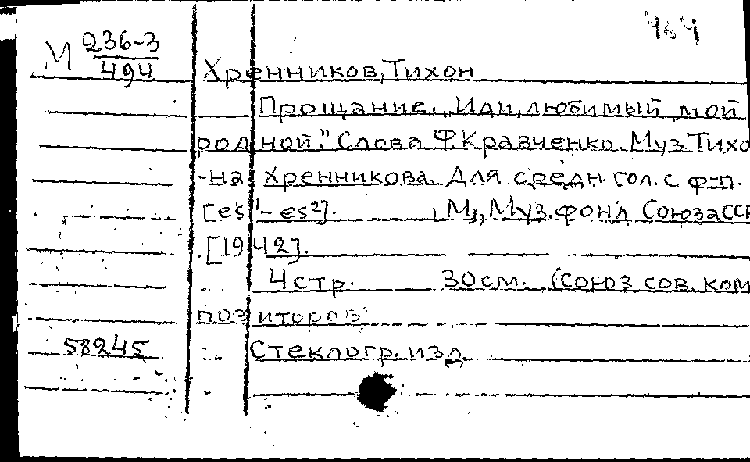 464
М 236-3
494
Хренников, Тихон
Прощание. „Иди, любимый мой
родной." Слова Ф. Кравченко. Муз. Тихо-
на Хренникова. Для средн. гол. с ф-п.
[es¹-es²]. М., Муз. фонд Союза ССР
[1942].
4 стр. 30 см. (Союз сов. ком
позиторов
58245 Стеклогр. изд.